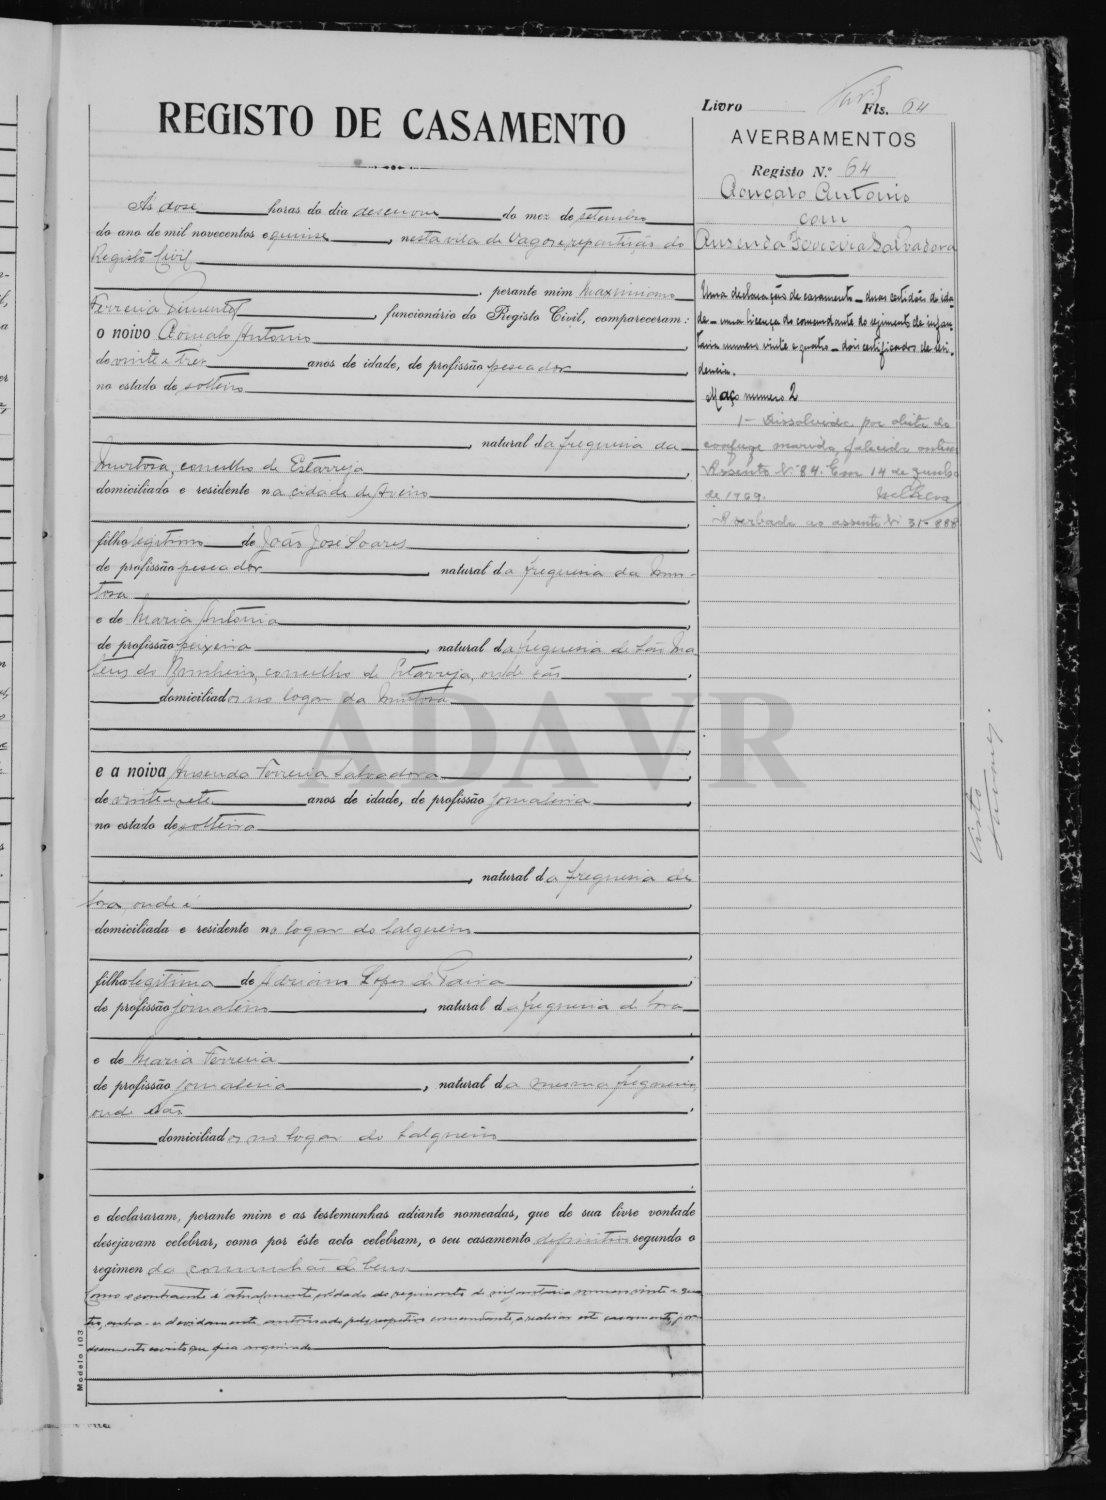 Livro Fls. 64
REGISTO DE CASAMENTO
AVERBAMENTOS
Registo N.º 64
Rómulo António
com
Ausenda Ferreira Salvadora
Ás dose horas do dia desenove do mez de setembro
do ano de mil novecentos e quinse, nesta vila de Vagos e repartição do
Registo Civil
, perante mim Maximiano
Ferreira Pimentel, funcionário do Registo Civil, compareceram:
o noivo Rómulo António,
de vinte e trez anos de idade, de profissão pescador,
no estado de solteiro
, natural da freguesia da
Murtosa, concelho de Estarreja,
domiciliado e residente na cidade de Aveiro
,
filho legitimo de João José Soares,
de profissão pescador, natural da freguesia da Mur-
tosa,
e de Maria Antónia,
de profissão peixeira, natural da freguesia de São Ma
teus do Bunheiro, concelho de Estarreja, onde são
domiciliados no logar da Murtosa
,
e a noiva Ausenda Ferreira Salvadora,
de vinte e sete anos de idade, de profissão jornaleira,
no estado de solteira
, natural da freguesia de
Sosa, onde é,
domiciliada e residente no logar do Salgueiro
,
filha legitima de Adriano Lopes de Paiva,
de profissão jornaleiro, natural da freguesia de Sosa
,
e de Maria Ferreira,
de profissão jornaleira, natural da mesma freguesia,
onde são,
domiciliados no logar do Salgueiro
;
e declararam, perante mim e as testemunhas adiante nomeadas, que de sua livre vontade
desejavam celebrar, como por êste acto celebram, o seu casamento definitivo segundo o
regimen da comunhão de bens
Como o contraente é atualmente soldado do regimento de infantaria numero vinte e qua
tro, acha-se devidamente autorisado pelo respetivo comandante, a realisar este casamento, por
documento escrito que fica arquivado
Modelo 103
Uma declaração de casamento – duas certidões de ida-
de – uma licença do comandante do regimento de infan-
taria numero vinte e quatro – dois certificados de resi-
dencia.
Maço numero 2
1 – Dissolvido por obito do
conjuge marido, falecido ontem
Assento N.º 84. Em 14 de junho
de 1969.
Averbado ao assento N.º 31-888
Visto
ADAVR